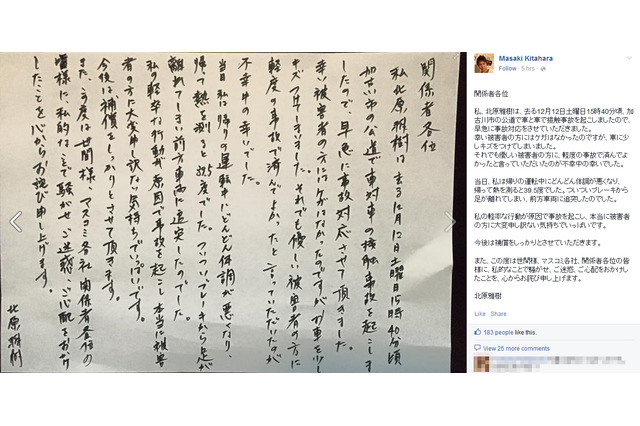 関係者各位
私北原雅樹は、去る12月12日土曜日15時40分頃
加古川市の公道で車対車の接触事故を起こしま
したので、早急に事故対応させて頂きました。
幸い被害者の方にはケガはなかったのですが、お車を少し
キズつけてしまいました。それでも優しい被害者の方に
軽度の事故で済んでよかったと言っていただいたのが
不幸中の幸いでした。
当日、私は帰りの運転中にどんどん体調が悪くなり、
帰って熱を測ると39.5度でした。ついついブレーキから足が
離れてしまい前方車両に追突したのでした。
私の軽率な行動が原因で事故を起こし本当に被害
者の方に大変申し訳ない気持ちでいっぱいです。
今後は補償をしっかりとさせて頂きます。
また、この度は世間様、マスコミ各社、関係者各位の
皆様に、私的なことで騒がせ、ご迷惑、ご心配をおかけ
したことを心からお詫び申し上げます。
北原雅樹
Masaki Kitahara
Follow · 5 hrs ·
関係者各位
私、北原雅樹は、去る12月12日土曜日15時40分頃、加
古川市の公道で車と車で接触事故を起こしましたので、
早急に事故対応をさせていただきました。
幸い被害者の方にはケガはなかったのですが、車に少
しキズをつけてしまいました。
それでも優しい被害者の方に、軽度の事故で済んでよ
かったと言っていただいたのが不幸中の幸いでした。
当日、私は帰りの運転中にどんどん体調が悪くなり、
帰って熱を測ると39.5度でした。ついついブレーキから
足が離れてしまい、前方車両に追突したのでした。
私の軽率な行動が原因で事故を起こし、本当に被害者
の方に大変申し訳ない気持ちでいっぱいです。
今後は補償をしっかりとさせていただきます。
また、この度は世間様、マスコミ各社、関係者各位の皆
様に、私的なことで騒がせ、ご迷惑、ご心配をおかけし
たことを、心からお詫び申し上げます。
北原雅樹
Like · Share
183 people like this.
View 25 more comments